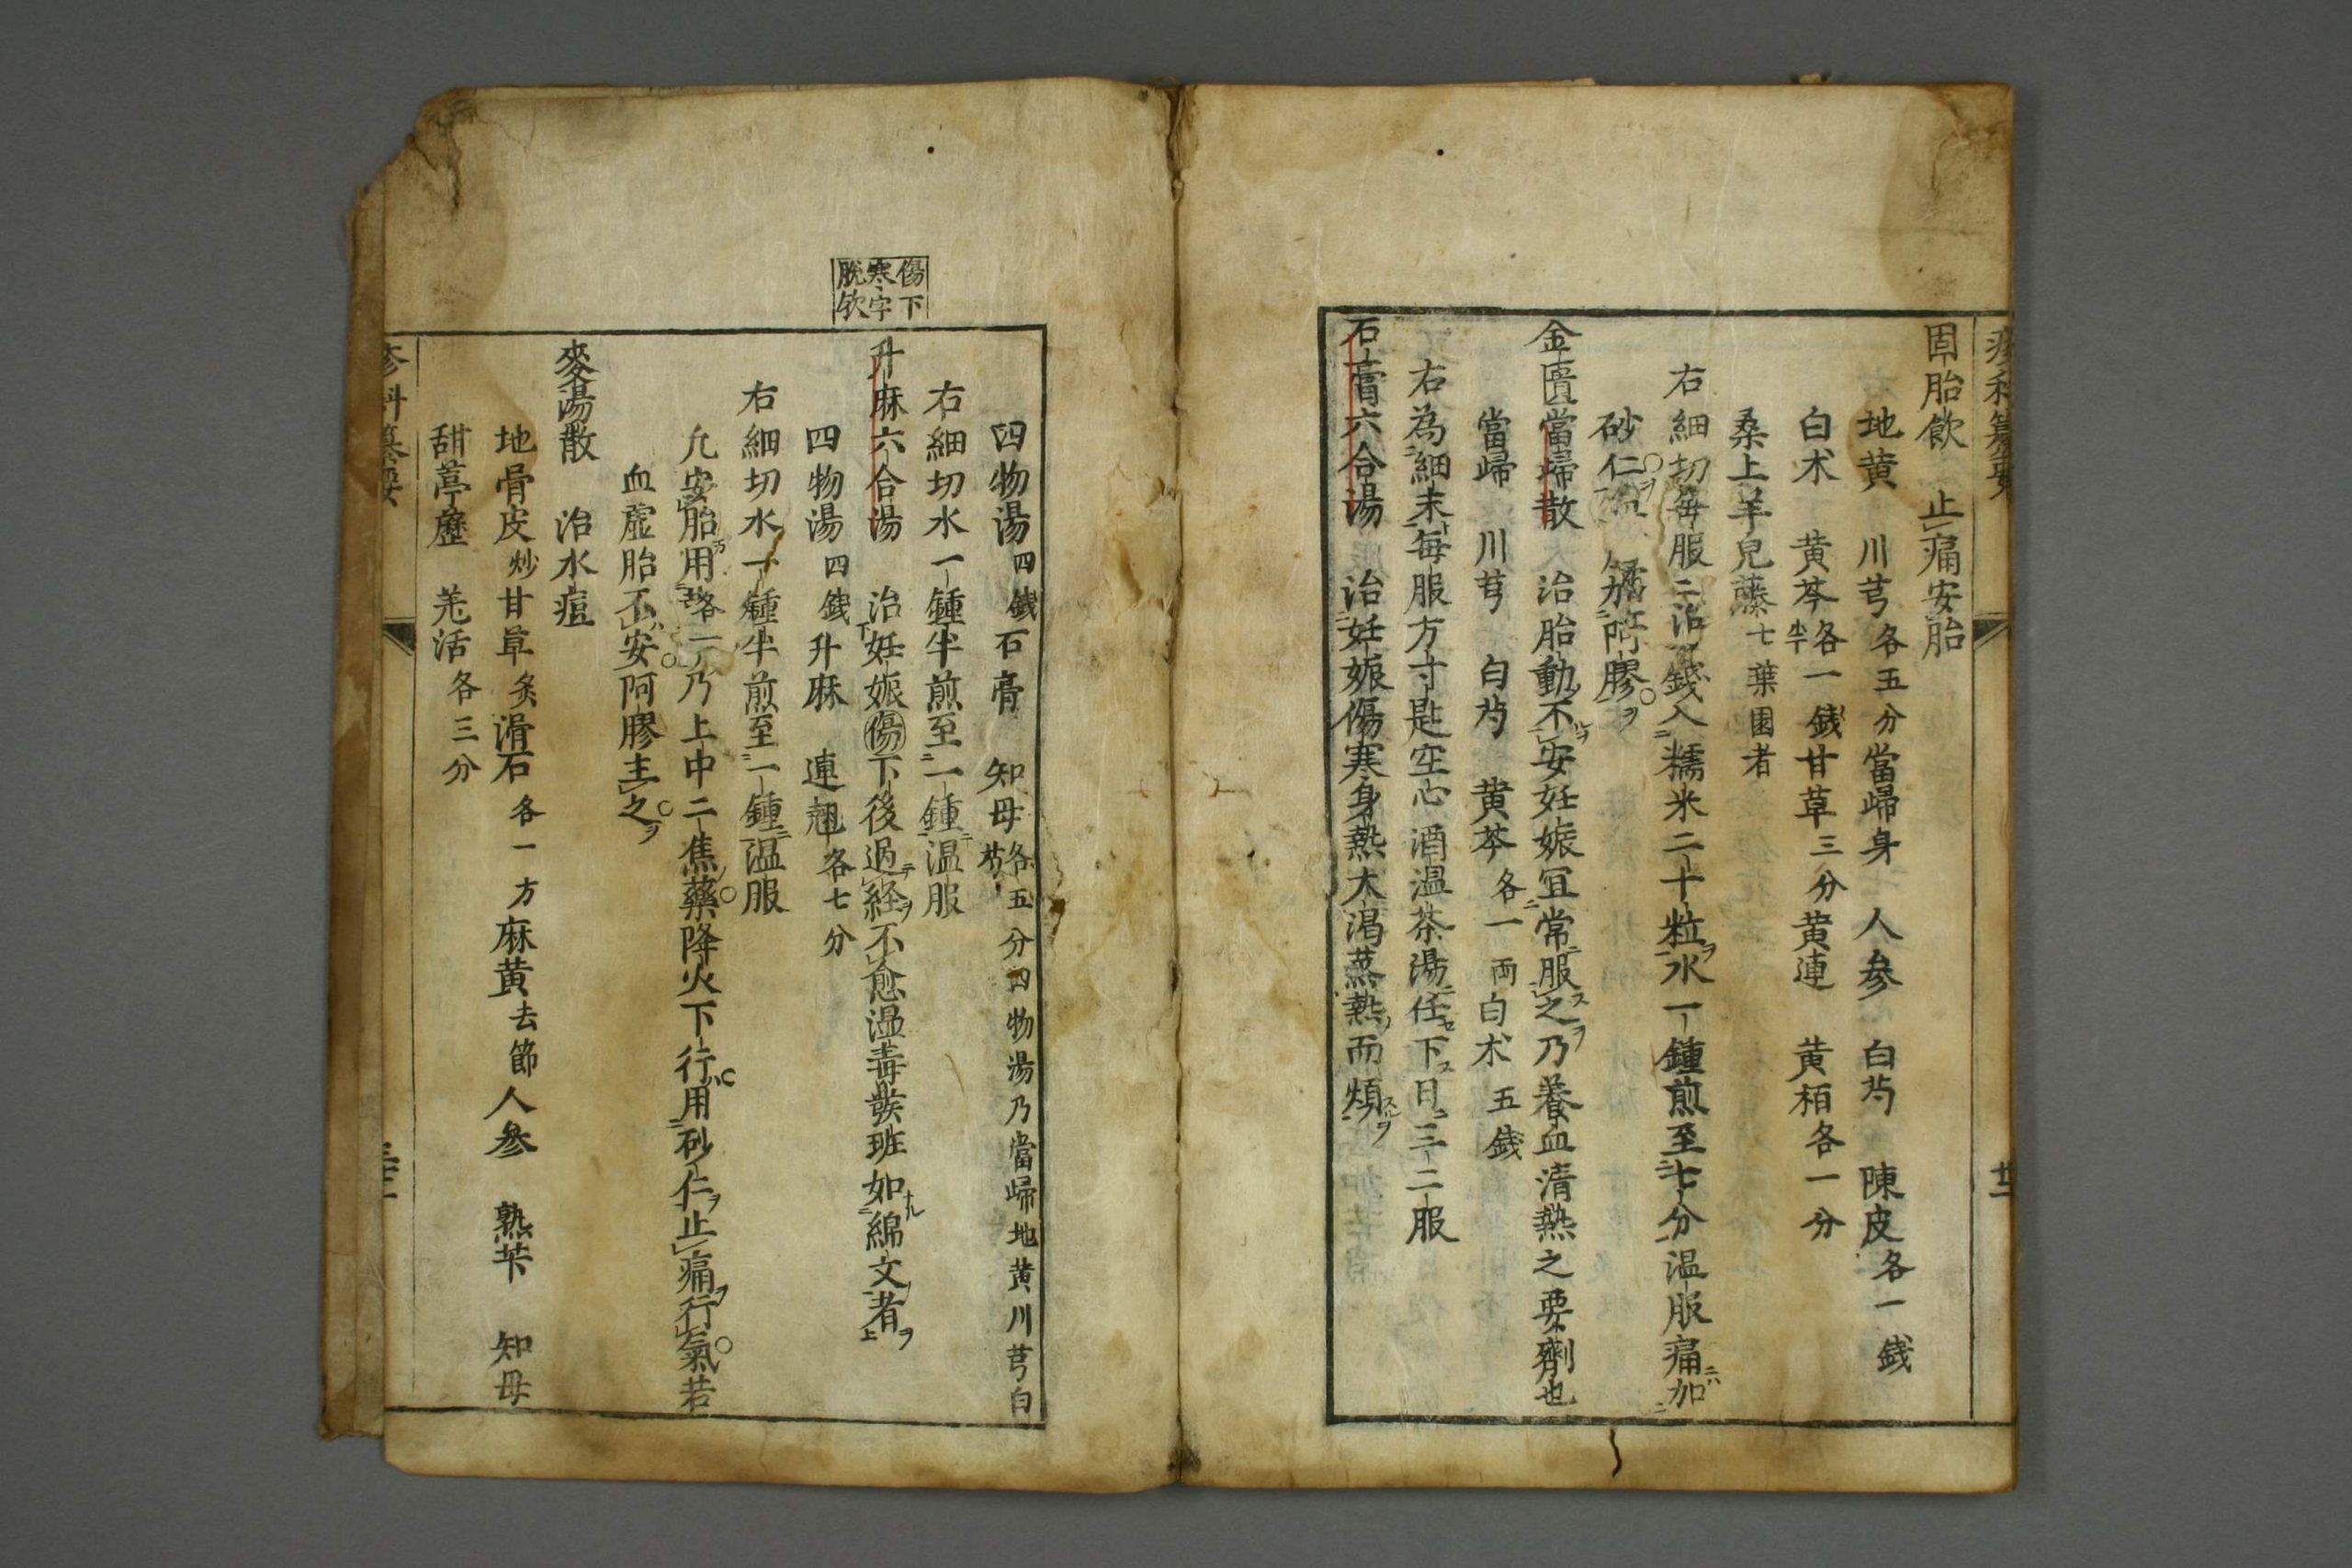 固胎飲　止痛安胎
地黄　川芎各五分當歸身　人參　白芍　陳皮各一錢
白朮　黄芩各一錢半甘草三分黄連　黄栢各一分
桑上羊兒藤七葉團者
右細切每服二錢入糯米二十粒水一鍾煎至七分温服痛加
砂仁　阿膠
金匱當歸散　治胎動不安妊娠冝常服之乃養血清熱之要劑也
當歸　川芎　白芍　黄芩各一兩白朮五錢
右為細末每服方寸匙空心酒温茶湯任下日三二服
石膏六合湯　治妊娠傷寒身熱大渴蒸熱而煩
四物湯四錢石膏　知母各五分四物湯乃當歸地黄川芎白芍
右細切水一鍾半煎至一鍾温服
傷下寒字脫欤
升麻六合湯　治妊娠傷下後過経不愈温毒發班如綿文者
四物湯四錢升麻　連翹各七分
右細切水一鍾半煎至一鍾温服
凢安胎用藥一乃上中二焦藥降火下行用砂仁止痛行氣若
血虛胎不安阿膠主之
麥湯散　治水痘
地骨皮炒甘草炙滑石各一方麻黄去節人參　熟芐　知母
甜葶藶　羌活各三分